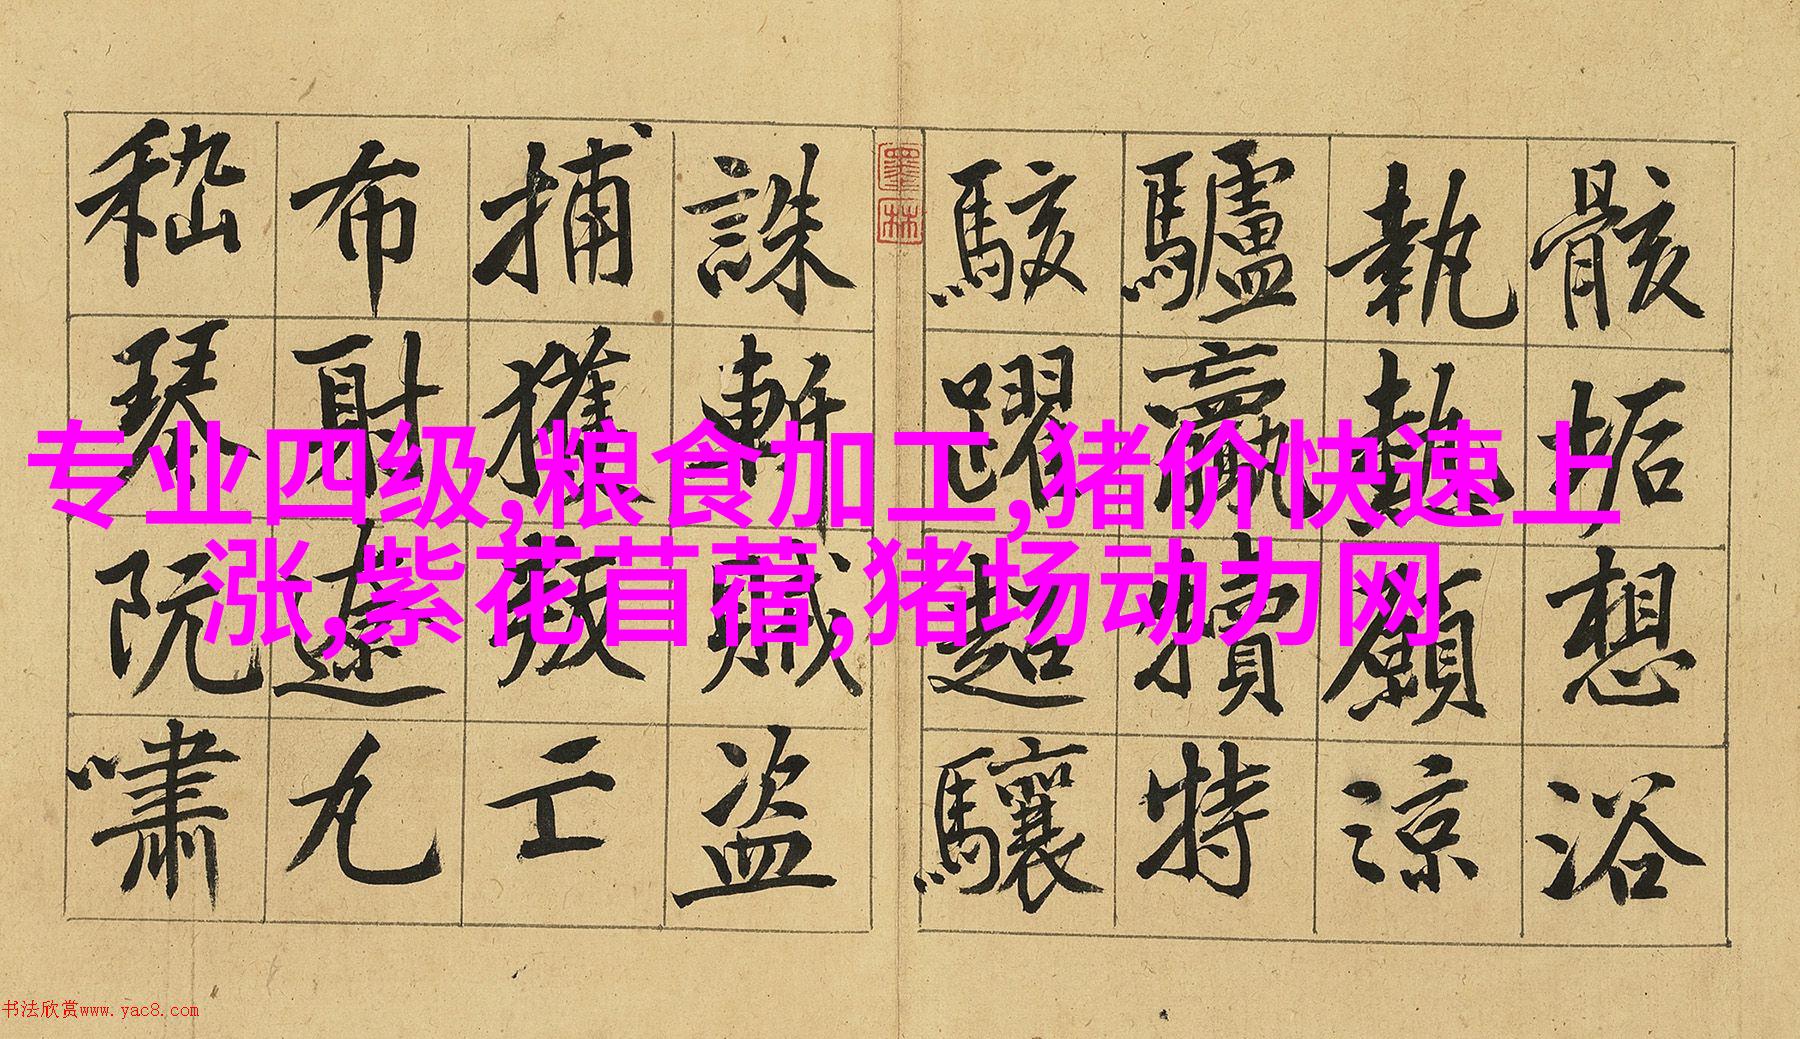 骸垢想浴
執熱願涼
驢犢特
駭躍超驤
墨林
誅斬賊盜
捕獲叛亡
布射遼丸
嵇琴阮嘯
专业四级,粮食加工,猪价快速上
涨,紫花苜蓿,猪场动力网
书法欣赏www.yac8.com